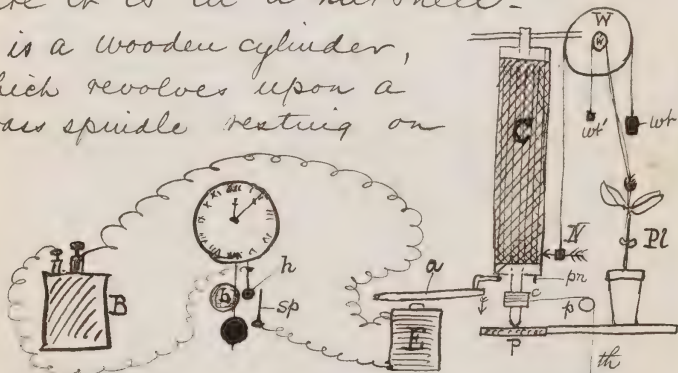 it is in a nutshell-
is a wooden cylinder,
hich revolves upon a
ass spindle resting on
W
w
C
wt'
wt
N
Pl
h
B
b
sp
a
E
pr
c
p
P
th